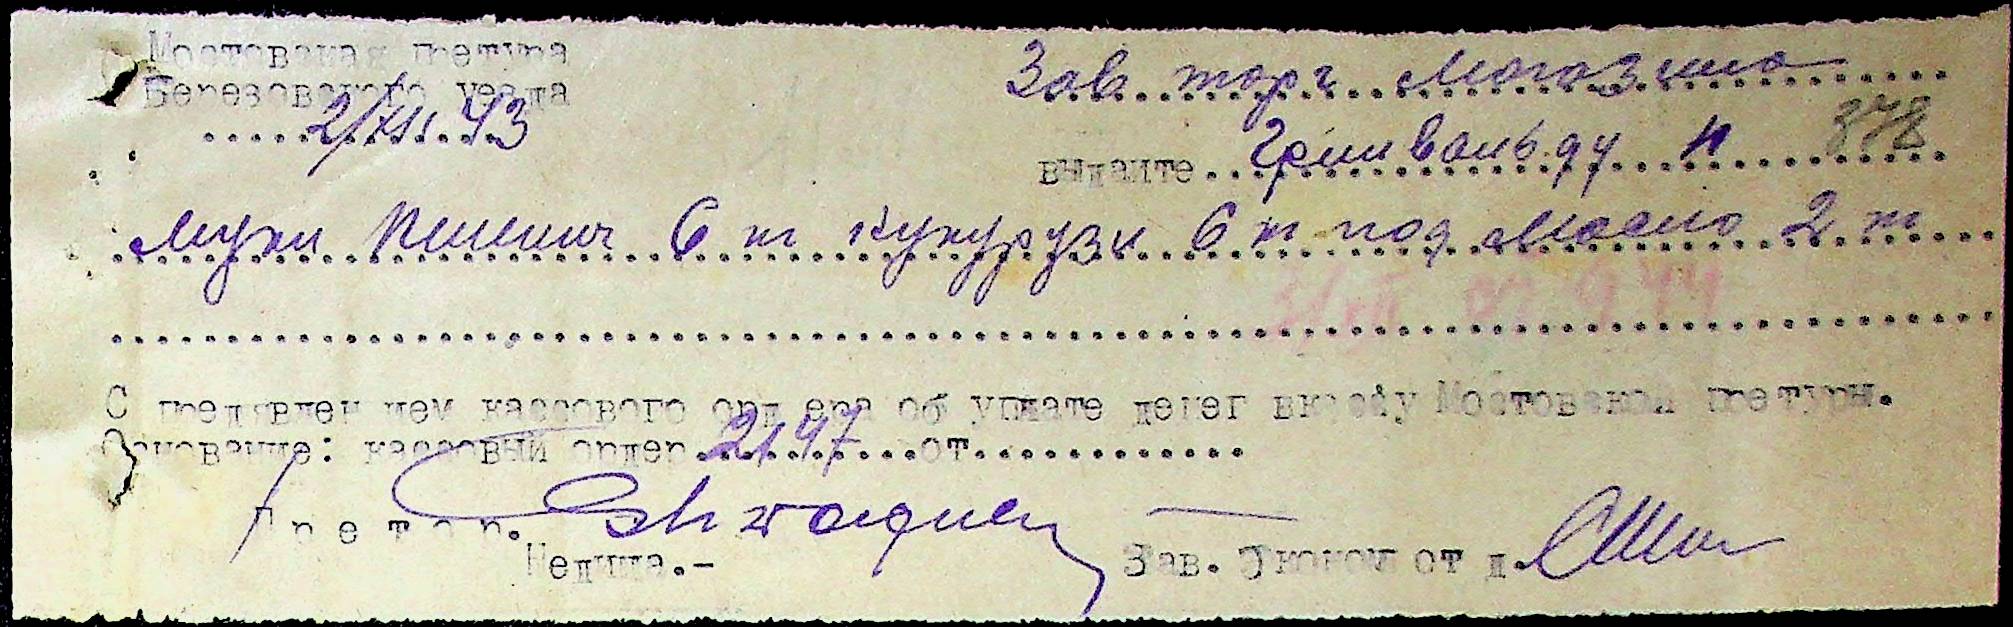 Мостовская претура
Березовского уезда
2/XII. 43
Зав торг Магазина
выдайте Гринвальду И 378
Муки Пшенич 6 кг Кукурузи 6 кг под Масло 2 кг
31/XII 944
С предявлением кассового ордера об уплате денег вкассу Мостовской претуры.
Основание: кассовый ордер 2197 от
Претор.
Недида.-
Зав. Эконом отд.